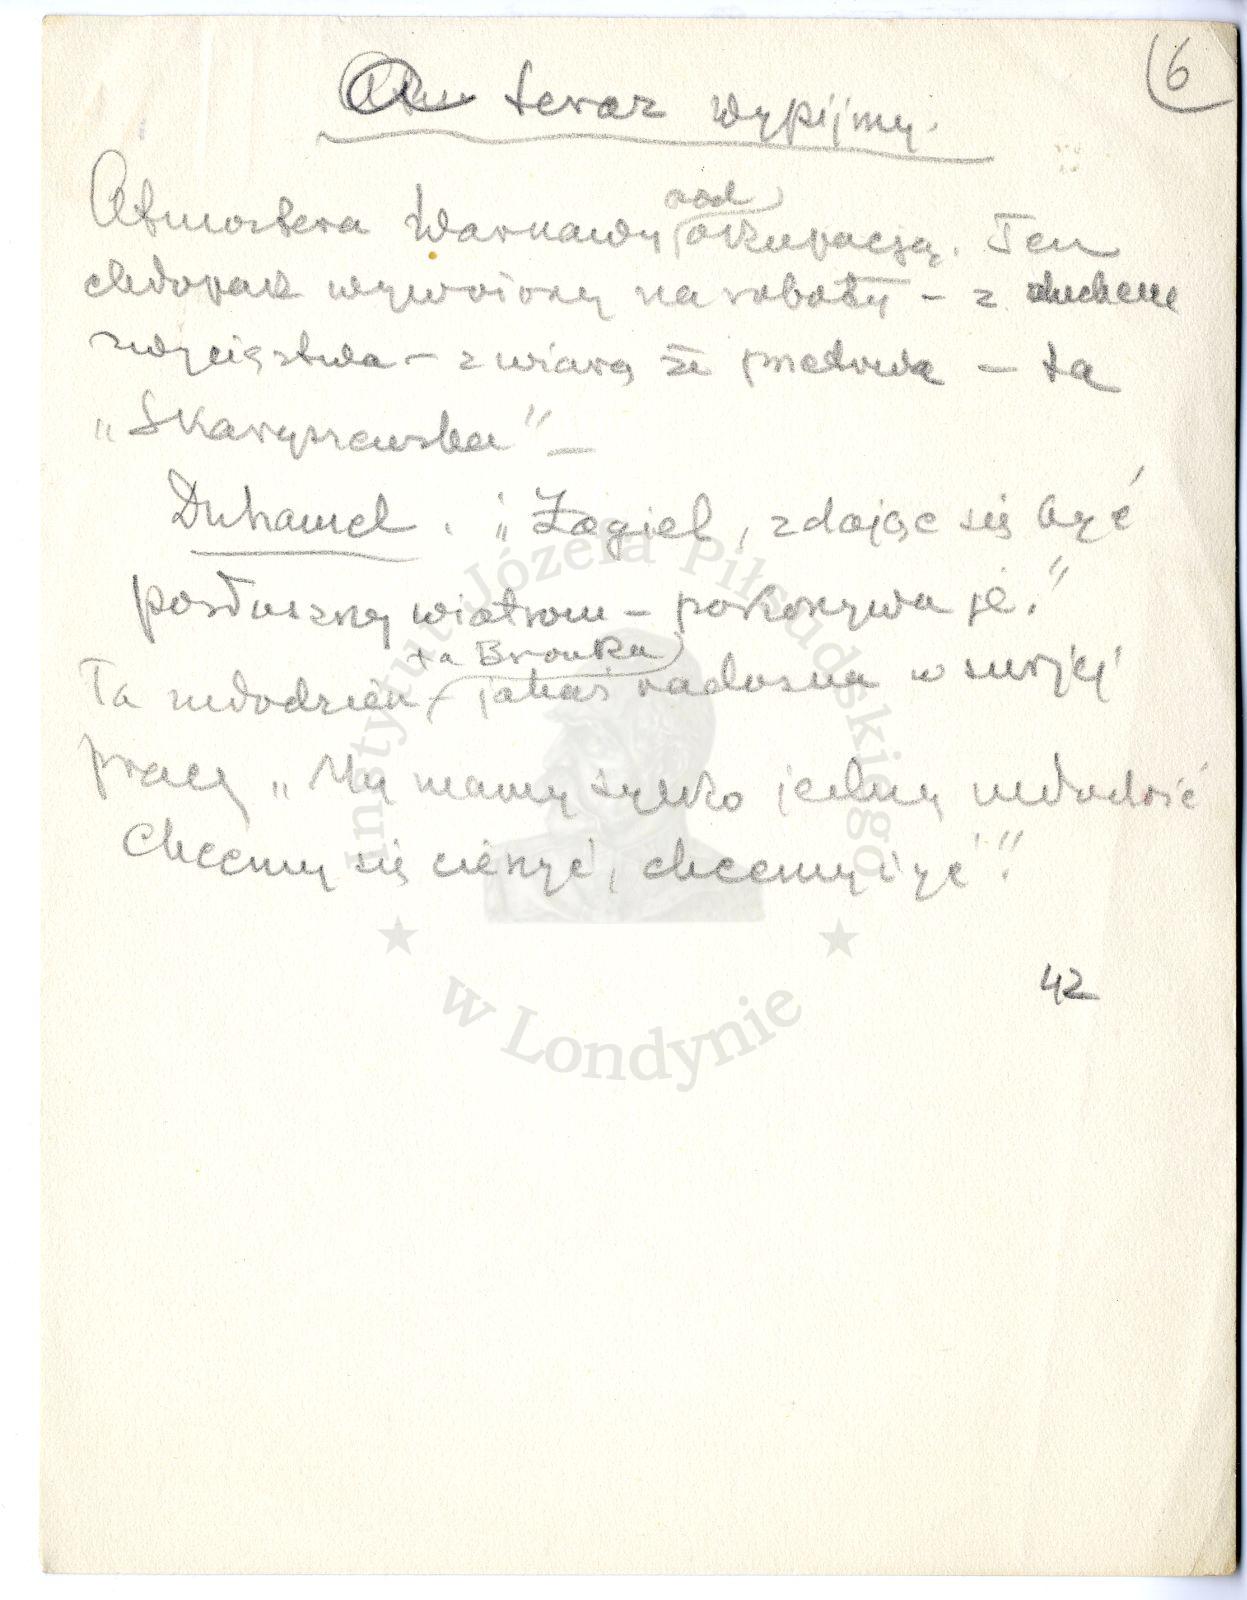 6
teraz wypijmy.
Atmosfera Warszawy pod okupacją. Ten
chłopak wywożony na roboty – z duchem
zwycięstwa – z wiarą że przetrwa – ta
„Skaryszewska” –
Duhamel. „Żagiel, zdając się być
posłuszny wiatrom – pokonywa je.”
Ta młodzież – ta Bronka jakaś radosna w swojej
pracy „My mamy tylko jedną młodość
Chcemy się cieszyć, chcemy żyć”.
42
Instytut Józefa Piłsudskiego
w Londynie